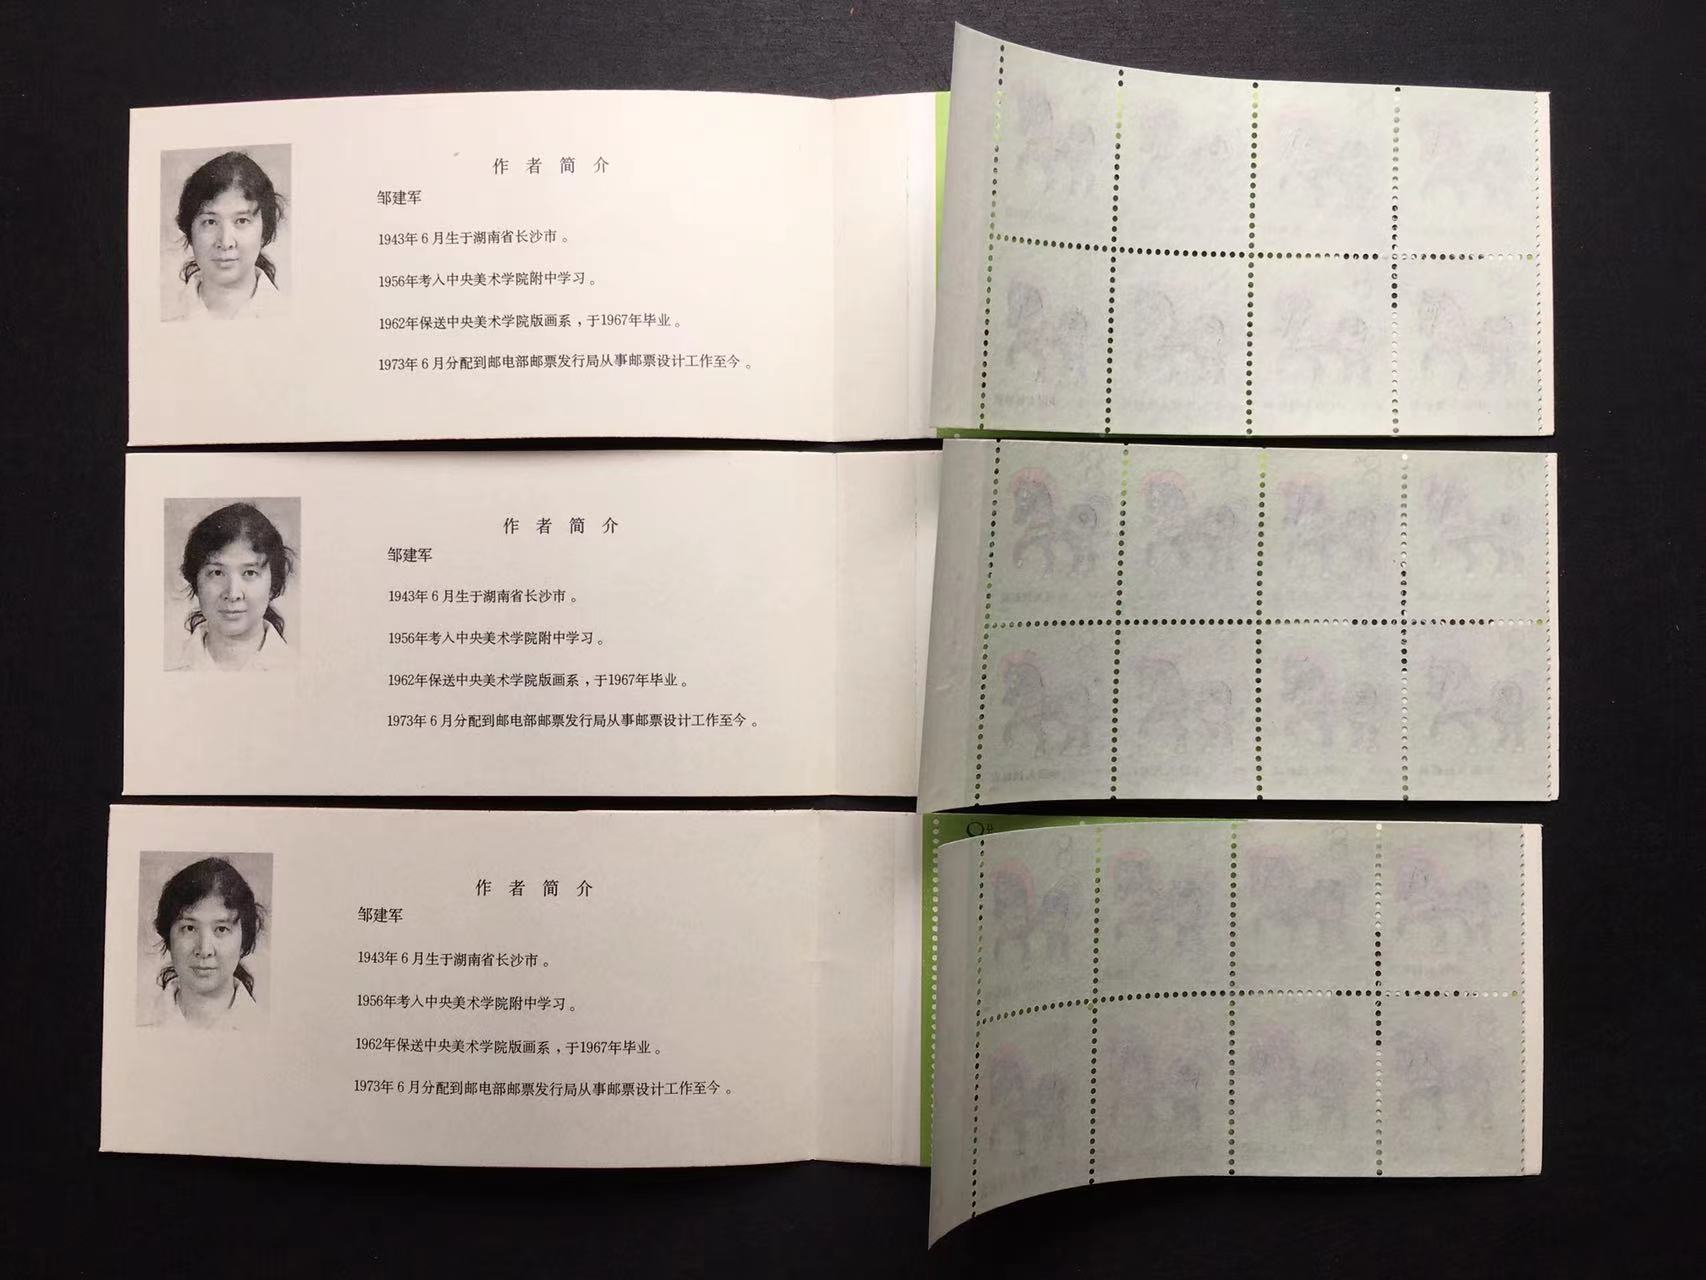 作者简介
邹建军
1943年6月生于湖南省长沙市。
1956年考入中央美术学院附中学习。
1962年保送中央美术学院版画系,于1967年毕业。
1973年6月分配到邮电部邮票发行局从事邮票设计工作至今。
作者简介
邹建军
1943年6月生于湖南省长沙市。
1956年考入中央美术学院附中学习。
1962年保送中央美术学院版画系,于1967年毕业。
1973年6月分配到邮电部邮票发行局从事邮票设计工作至今。
作者简介
邹建军
1943年6月生于湖南省长沙市。
1956年考入中央美术学院附中学习。
1962年保送中央美术学院版画系,于1967年毕业。
1973年6月分配到邮电部邮票发行局从事邮票设计工作至今。